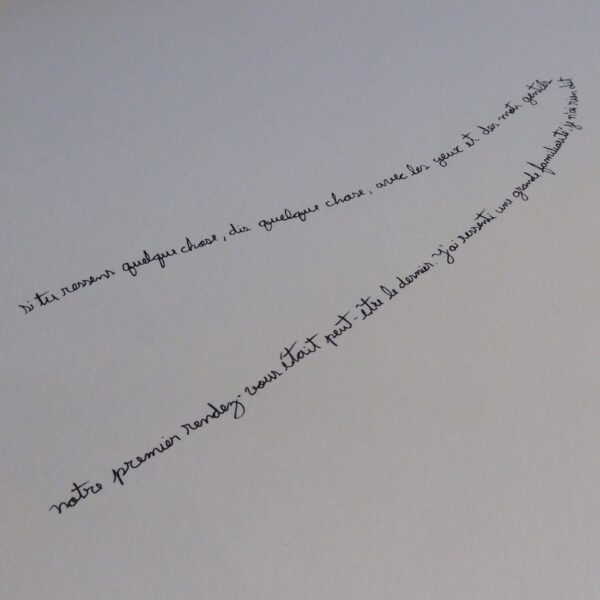 si tu ressens quelque chose, dis quelque chose, avec les yeux et des mots gentils
notre premier rendez-vous était peut-être le dernier. j'ai ressenti une grande familiarité je n'ai rien dit